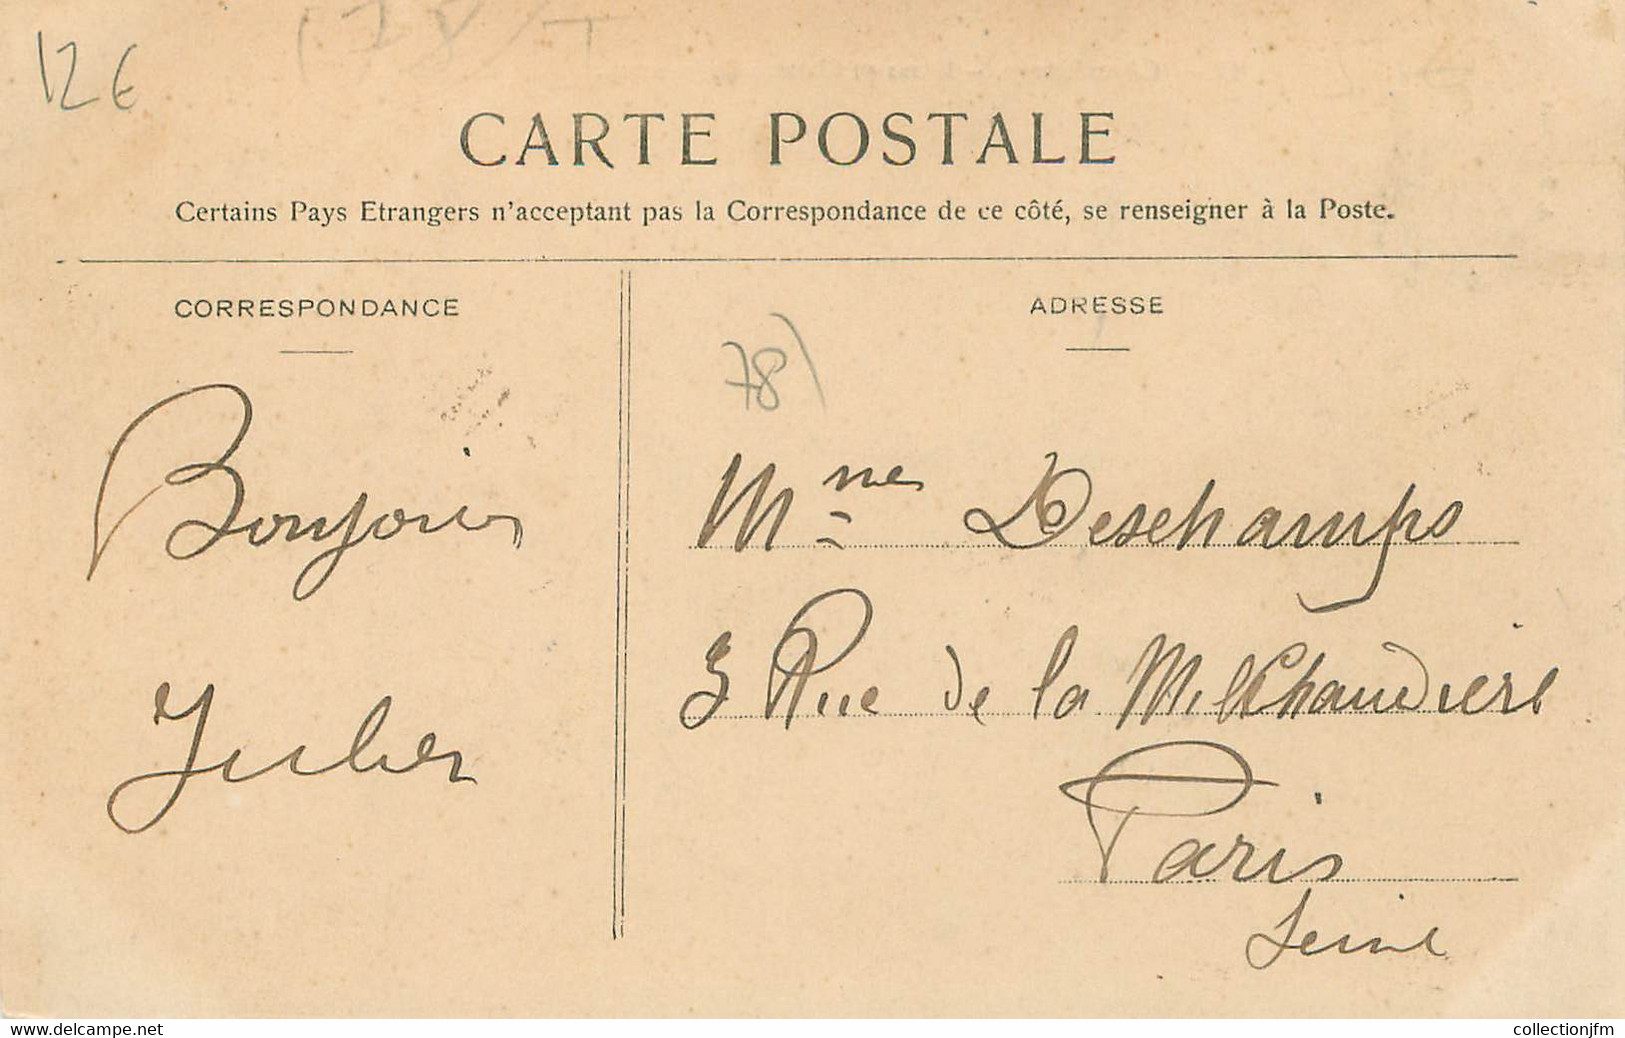 12 €
CARTE POSTALE
Certains Pays Etrangers n'acceptant pas la Correspondance de ce côté, se renseigner à la Poste.
CORRESPONDANCE
Bonjour
ADRESSE
78)
Mmes Deschamps
3 Rue de la
Paris
Seine
www.delcampe.net
collectionjfm